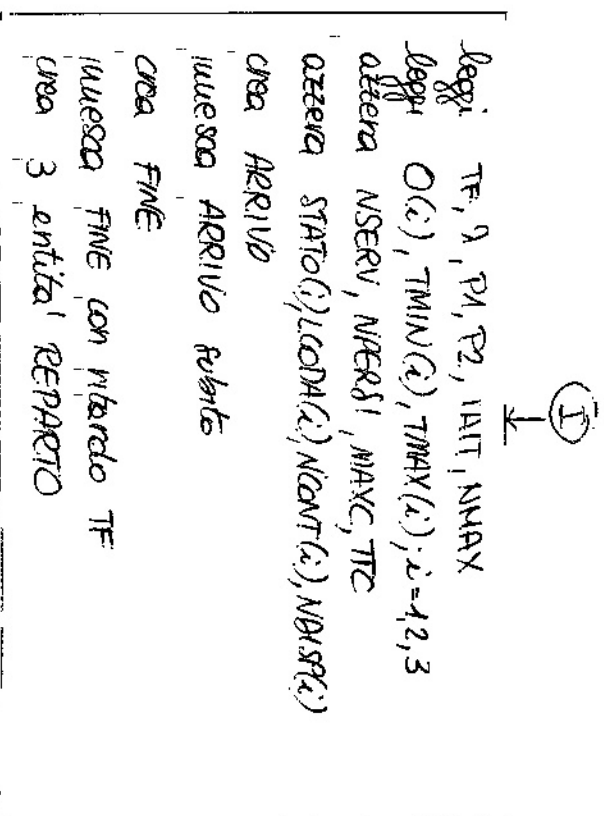 I
leggi TF, λ, P1, P2, IAIT, NMAX
leggi O(i), TMIN(i), TMAX(i); i=1,2,3
azzera NSERV, NPERSI, MAXC, TTC
azzera STATO(i), LCODA(i), NCONT(i), NDISP(i)
crea ARRIVO
innesca ARRIVO subito
crea FINE
innesca FINE con ritardo TF
crea 3 entita' REPARTO